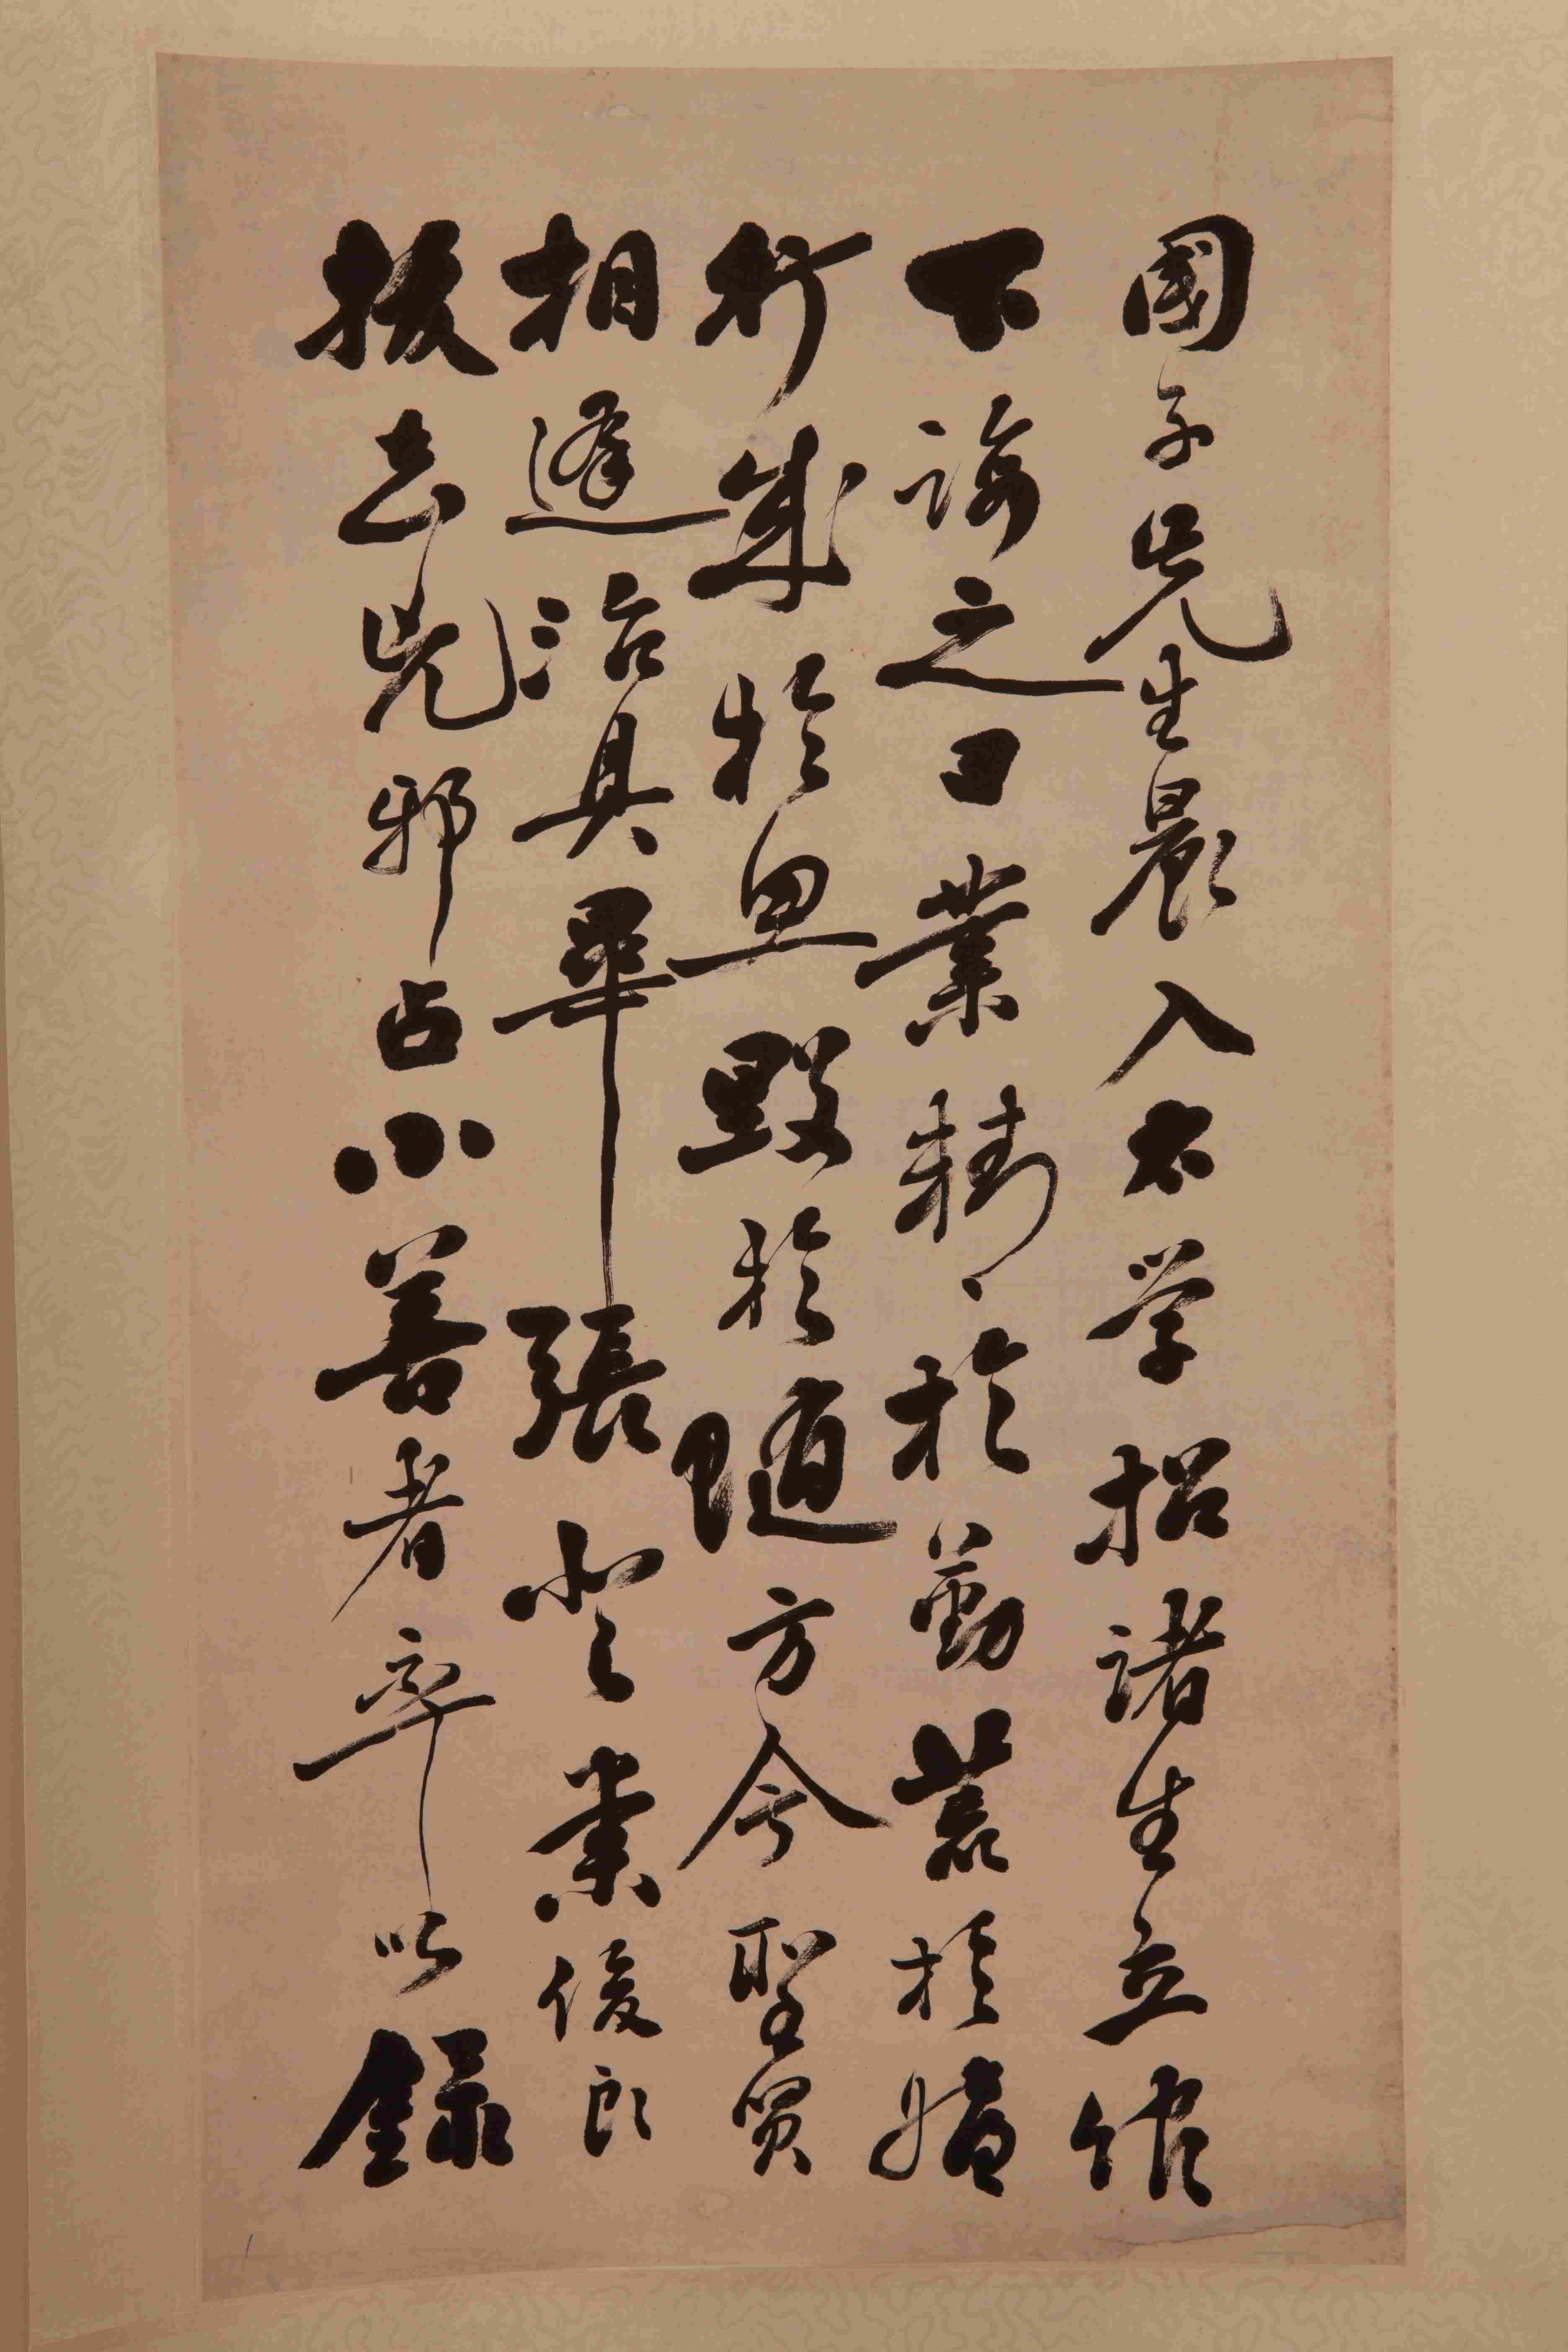 國子先生晨入太学招諸生立館
下誨之曰業精於勤荒於嬉
行成於思毀於隨方今聖賢
相逢治具畢張登崇俊良
拔去兇邪占小善者率以錄